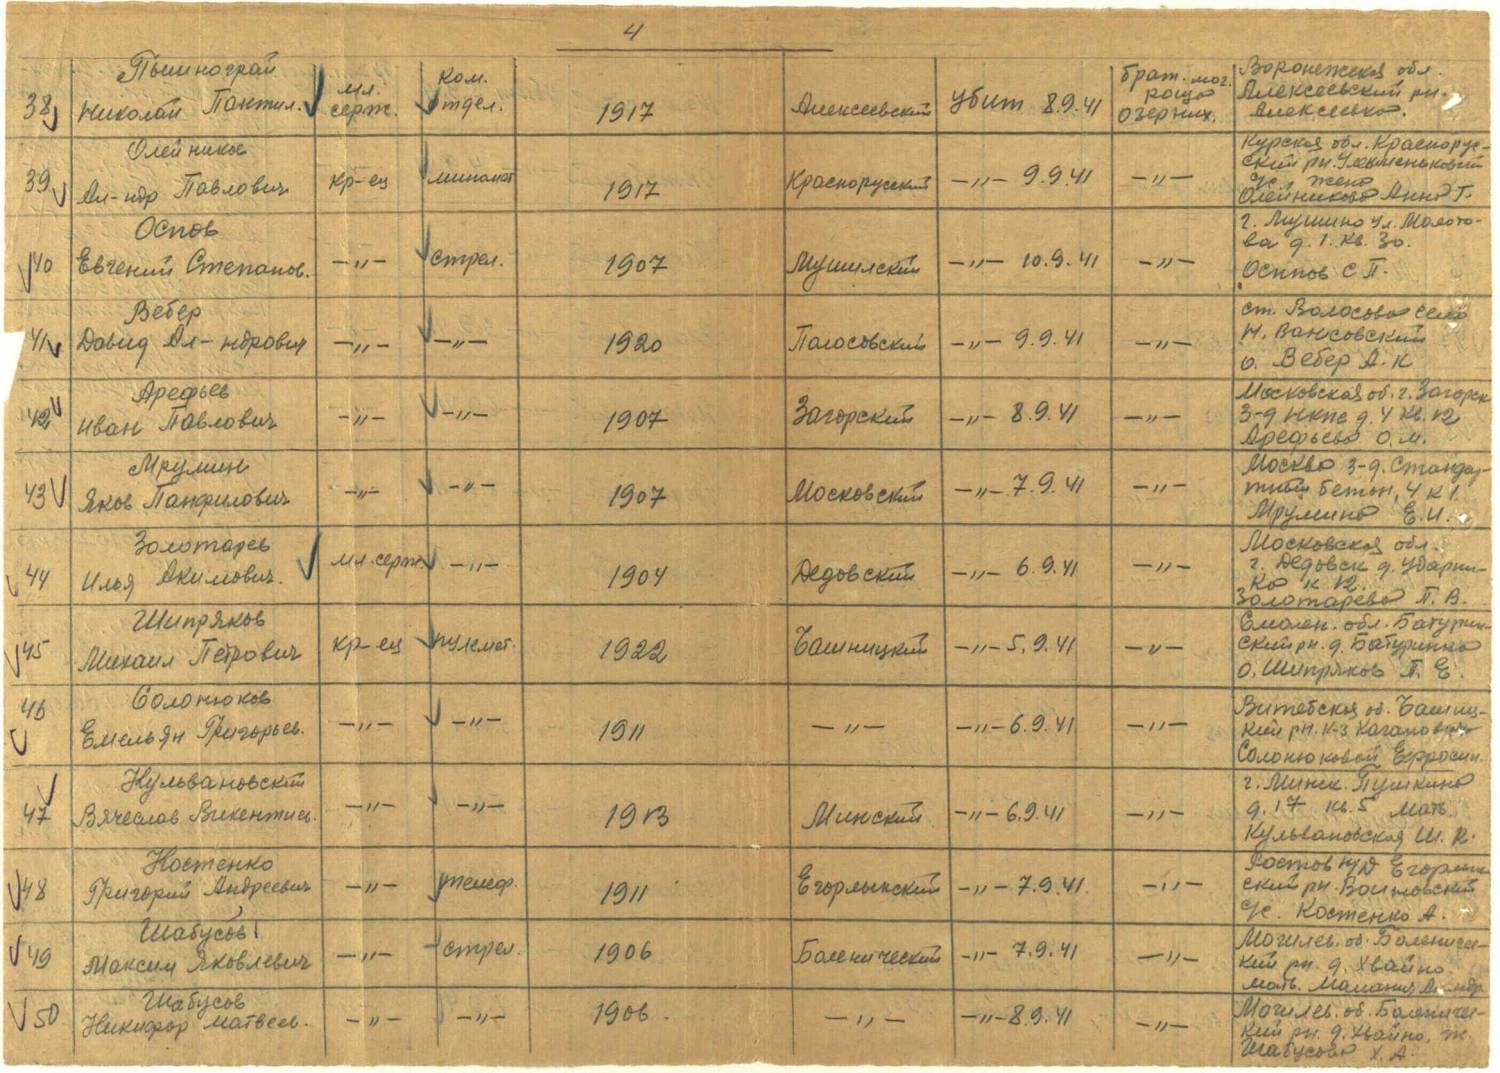 4
38 Пышнограй Николай Пантил. мл. серж. ком. отдел. 1917 Алексеевский убит 8.9.41 брат. мог. роща озерних. Воронежская обл. Алексеевский рн. Алексеевка.
39 Олейников Ал-ндр Павлович кр-ец миномет 1917 Краснорусский —„— 9.9.41 —„— Курская обл. Краснорусский рн. с/с, жена Олейникова Анна Г.
40 Осипов Евгений Степанов. —„— стрел. 1907 Мушилский —„— 10.9.41 —„— г. Мушино ул. Молотова д. 1. кв. 30. Осипов С П.
41 Вебер Давид Ал-ндрович —„— —„— 1920 Полосовский —„— 9.9.41 —„— ст. Волосово село Н. Вансовский о. Вебер А. К
42 Арефьев Иван Павлович —„— —„— 1907 Загорский —„— 8.9.41 —„— Московская об. г. Загорск 3-д НКПС д. 4 кв. 12 Арефьева О. М.
43 Мрумин Яков Панфилович —„— —„— 1907 Московский —„— 7.9.41 —„— Москва 3-д. Стандартный бетон, 4 к 1. Мрумина Е. И.
44 Золотарев Илья Акимович. мл. серж —„— 1904 Дедовский —„— 6.9.41 —„— Московская обл. г. Дедовск д. Ударника к 12. Золотарева П. В.
45 Шипряков Михаил Петрович кр-ец пулемет. 1922 Чашницкий —„— 5.9.41 —„— Смолен. обл. Батуринский рн. д. Батурино о. Шипряков П. Е.
46 Солонюков Емельян Григорьев. —„— —„— 1911 —„— —„— 6.9.41 —„— Витебская об. Чашницкий рн. к-з Кагановича Солонюковой Ефросин.
47 Кульвановский Вячеслав Викентиев. —„— —„— 1913 Минский —„— 6.9.41 —„— г. Минск Пушкина д. 17 кв. 5 мать Кульвановская Ш. К.
48 Костенко Григорий Андреевич —„— телеф. 1911 Егорлыкский —„— 7.9.41 —„— Ростов н/Д Егорлыкский рн. с/с. Костенко А.
49 Шабусов Максим Яковлевич —„— стрел. 1906 Боленический —„— 7.9.41 —„— Могилев. об. Боленический рн. д. Хвайно. мать. Малания
50 Шабусов Никифор Матвеев. —„— —„— 1906. —„— —„— 8.9.41 —„— Могилев. об. Боленический рн. д. Хвайно, ж. Шабусова Х. А.